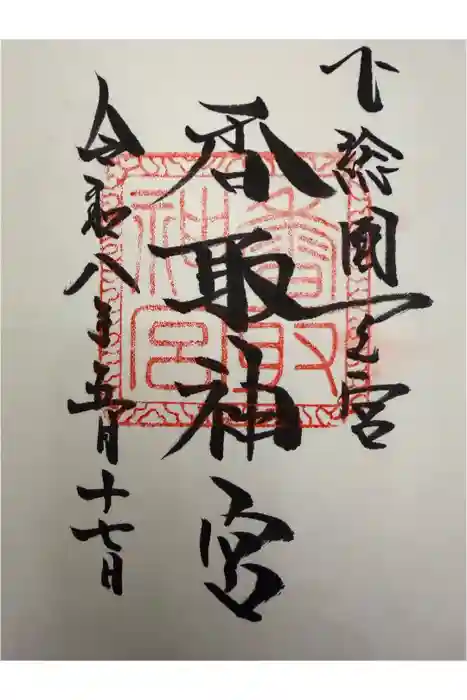 下総國一之宮
香取神宮
令和八年五月十七日
香取
神宮